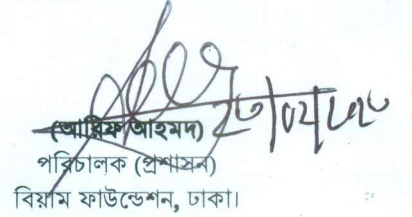 (আরিফ আহমদ)
পরিচালক (প্রশাসন)
বিয়াম ফাউন্ডেশন, ঢাকা।